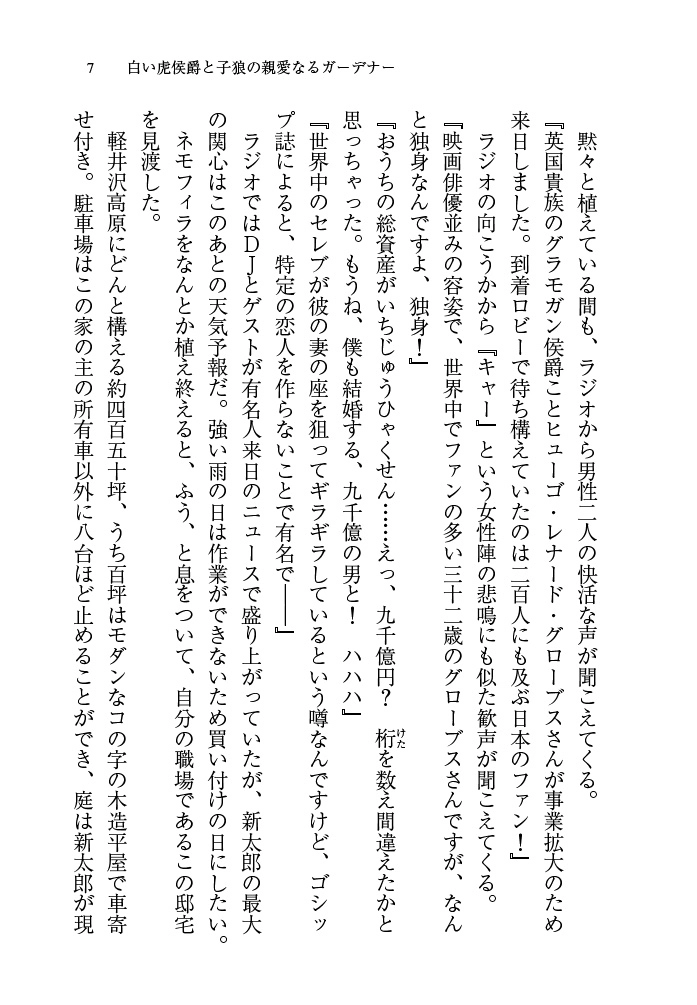 7　白い虎侯爵と子狼の親愛なるガーデナー
　黙々と植えている間も、ラジオから男性二人の快活な声が聞こえてくる。
『英国貴族のグラモガン侯爵ことヒューゴ・レナード・グローブスさんが事業拡大のため
来日しました。到着ロビーで待ち構えていたのは二百人にも及ぶ日本のファン！』
　ラジオの向こうかから『キャー』という女性陣の悲鳴にも似た歓声が聞こえてくる。
『映画俳優並みの容姿で、世界中でファンの多い三十二歳のグローブスさんですが、なん
と独身なんですよ、独身！』
『おうちの総資産がいちじゅうひゃくせん……えっ、九千億円？　桁を数え間違えたかと
けた
思っちゃった。もうね、僕も結婚する、九千億の男と！　ハハハ』
『世界中のセレブが彼の妻の座を狙ってギラギラしているという噂なんですけど、ゴシッ
プ誌によると、特定の恋人を作らないことで有名で――』
　ラジオではＤＪとゲストが有名人来日のニュースで盛り上がっていたが、新太郎の最大
の関心はこのあとの天気予報だ。強い雨の日は作業ができないため買い付けの日にしたい。
　ネモフィラをなんとか植え終えると、ふう、と息をついて、自分の職場であるこの邸宅
を見渡した。
　軽井沢高原にどんと構える約四百五十坪、うち百坪はモダンなコの字の木造平屋で車寄
せ付き。駐車場はこの家の主の所有車以外に八台ほど止めることができ、庭は新太郎が現